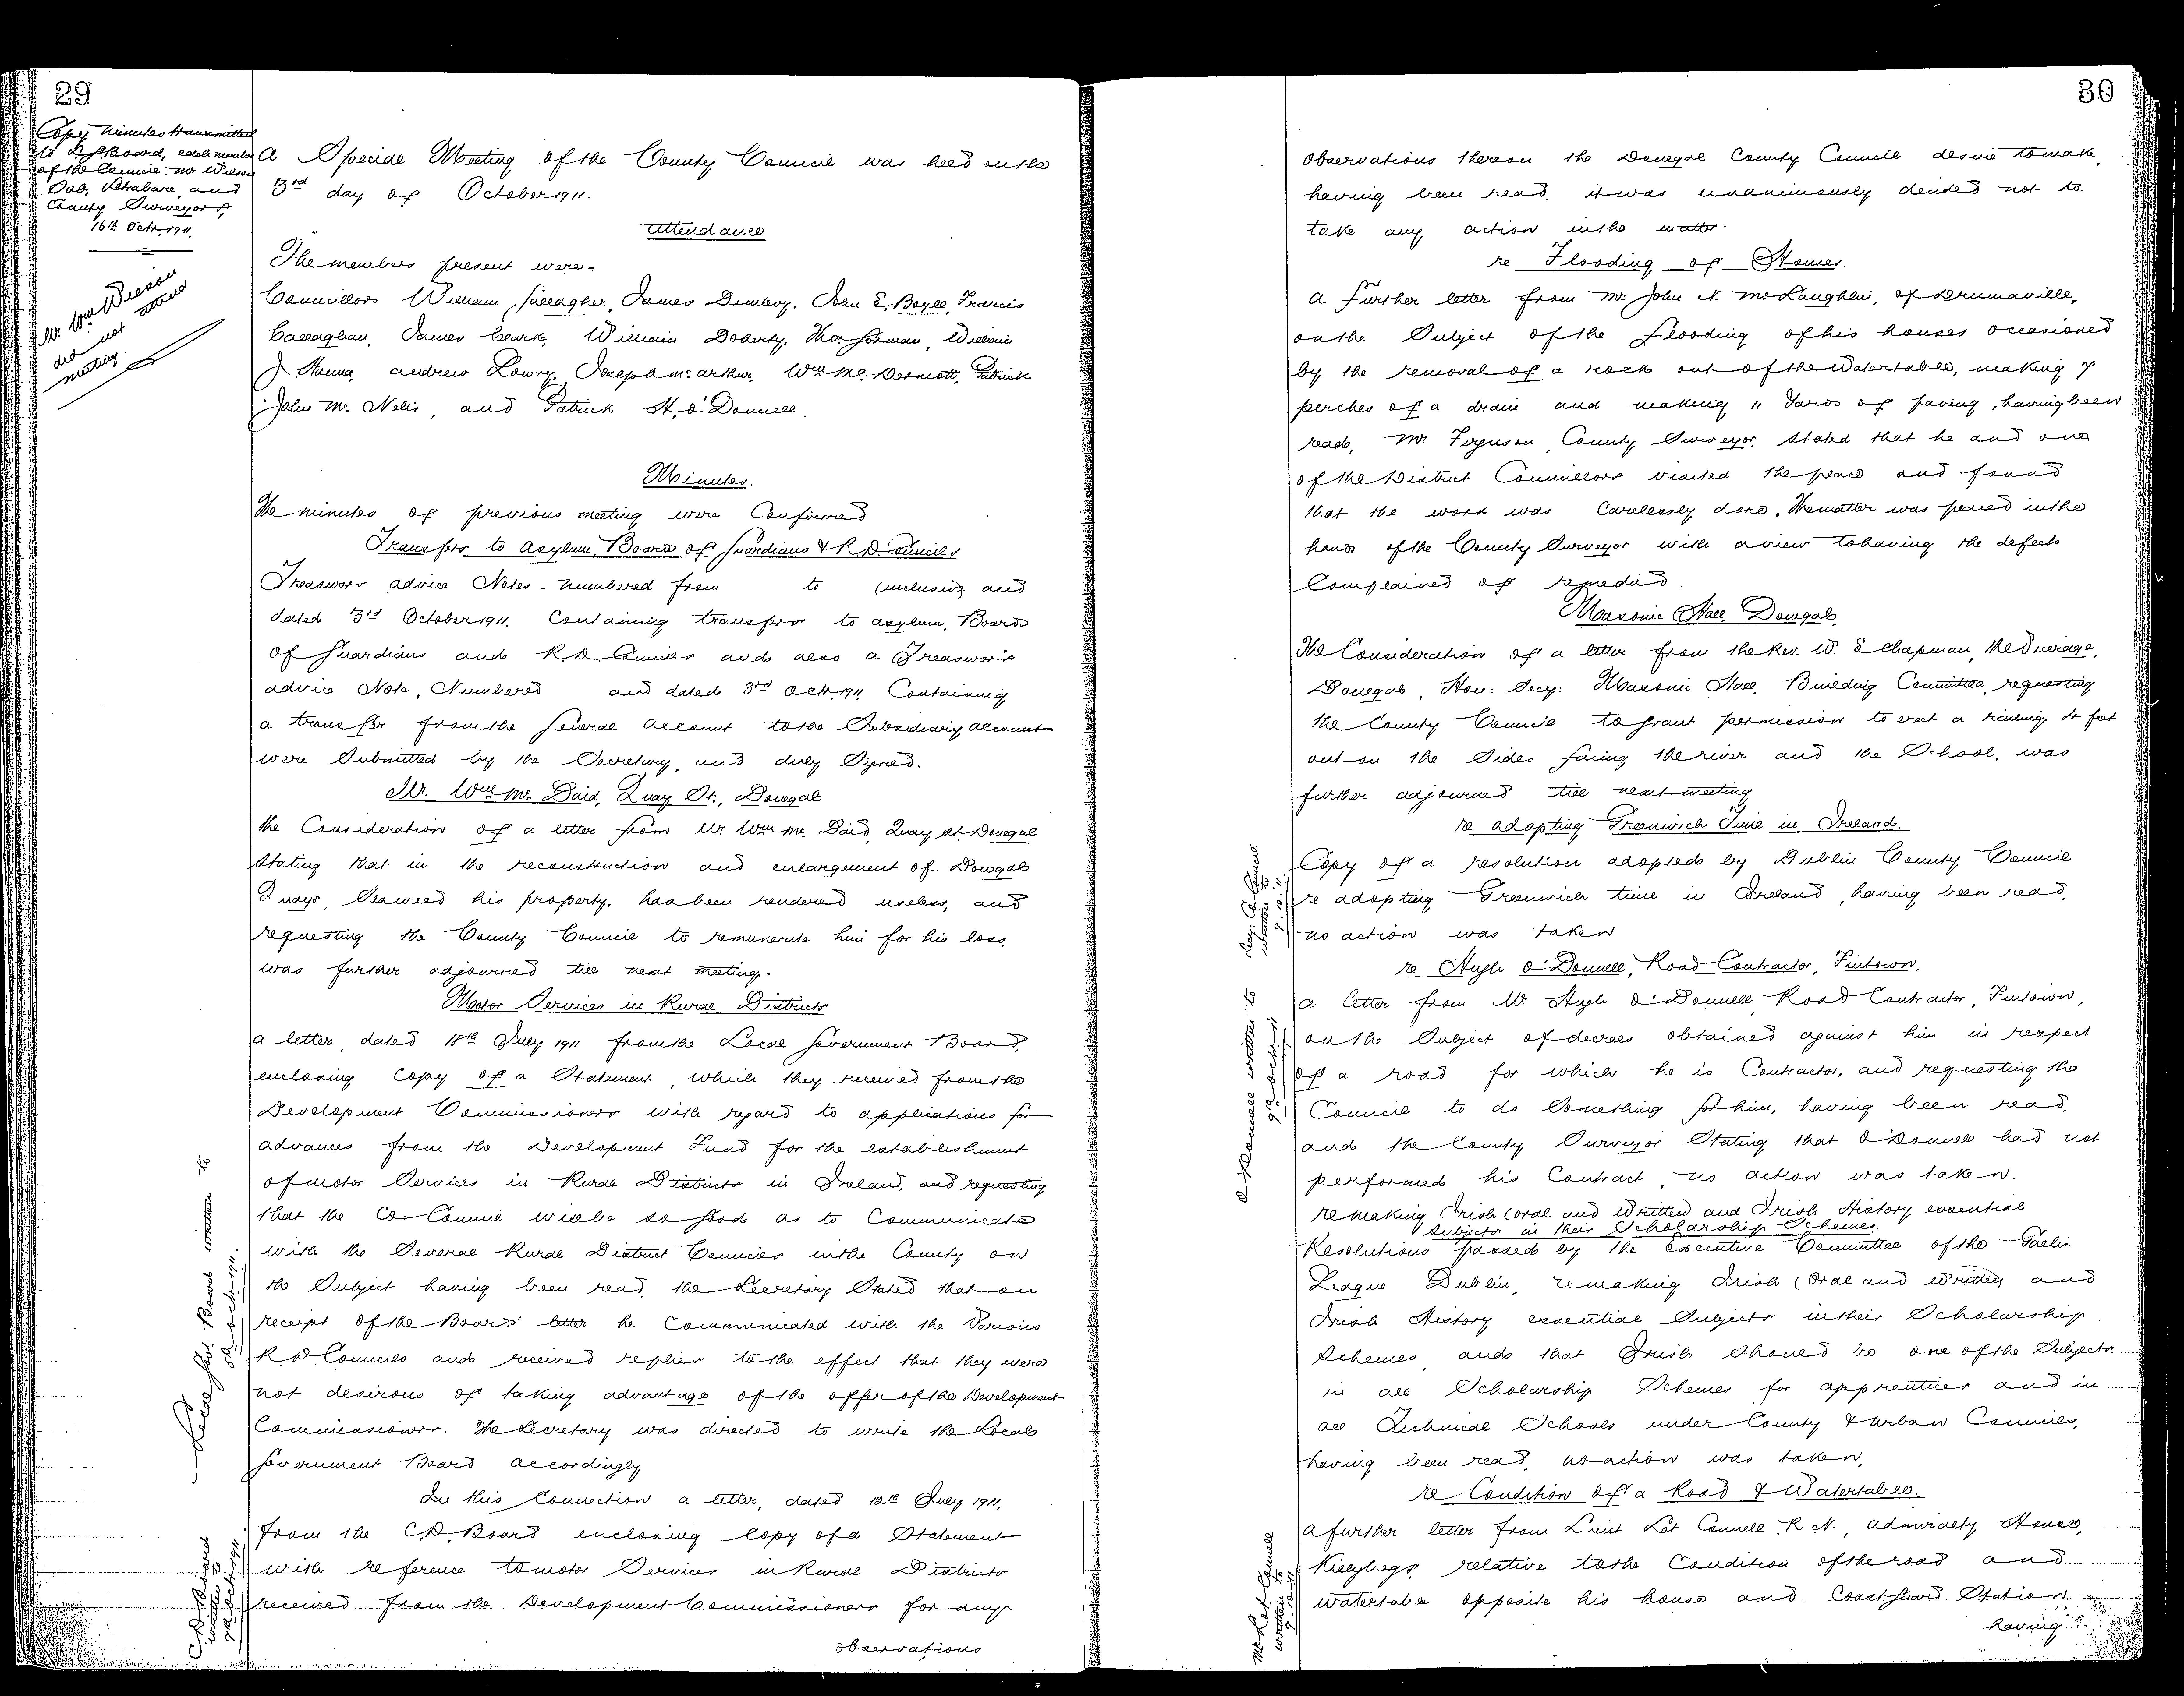 29
Copy Minutes transmitted
to L G Board, each member
of the Council, Mr Wilson
Sol. Strabane and
County Surveyors,
16th Octr. 1911.
Mr. Wm Wilson
did not attend
meeting.
A Special Meeting of the County Council was held on the
3rd day of October 1911.
Attendance
The members present were-
Councillors William Gallagher, James Dunlevy, John E. Boyle, Francis
Callaghan, James Clarke, William Doherty, Thos Gorman, William
J. Hanna, Andrew Lowry, Joseph McArthur, Wm McDermott, Patrick
John McNelis, and Patrick H. O'Donnell.
Minutes.
The minutes of previous meeting were Confirmed
Transfers to Asylum, Boards of Guardians & R D Councils
Treasurers advice Notes - numbered from to (inclusive) and
dated 3rd October 1911. Containing transfers to asylum, Boards
of Guardians and R. D Councils and also a Treasurer's
advice Note, Numbered and dated 3rd Oct. 1911 Containing
a transfer from the General Account to the Subsidiary Account
were Submitted by the Secretary, and duly Signed.
Mr. Wm Mc Daid, Quay St., Donegal
The Consideration of a letter from Mr Wm Mc Daid, Quay St. Donegal
Stating that in the reconstruction and enlargement of Donegal
Quays, Seaweed his property, has been rendered useless, and
requesting the County Council to remunerate him for his loss,
was further adjourned till next meeting.
Motor Services in Rural Districts
A letter, dated 18th July 1911 from the Local Government Board,
enclosing Copy of a Statement, which they received from the
Development Commissioners with regard to applications for
advances from the Development Fund for the establishment
of motor Services in Rural Districts in Ireland, and requesting
that the Co. Council will be so good as to Communicate
with the Several Rural District Councils in the County on
the Subject having been read, the Secretary Stated that on
receipt of the Boards' letter he Communicated with the Various
R D Councils and received replies to the effect that they were
not desirous of taking advantage of the offer of the Development
Commissioners. The Secretary was directed to write the Local
Government Board accordingly
Local Govt. Board written to
9th Oct. 1911.
In this Connection a letter, dated 12th July 1911,
from the C. D. Board enclosing Copy of a Statement
with reference to motor Services in Rural Districts
received from the Development Commissioners for any
C. D. Board
written to
9th Oct. 1911
observations
30
observations thereon the Donegal County Council desire to make,
having been read, it was unanimously decided not to
take any action in the matter.
re Flooding of Houses.
A further letter from Mr John N. McLaughlin, of Drumaville,
on the Subject of the flooding of his houses occasioned
by the removal of a rock out of the Watertables, making 7
perches of a drain and making 11 Yards of paving, having been
read, Mr Ferguson, County Surveyor, Stated that he and one
of the District Councillors visited the place and found
that the work was Carelessly done. The matter was placed in the
hands of the County Surveyor with a view to having the defects
Complained of remedied.
Masonic Hall, Donegal.
The Consideration of a letter from the Rev. W. E Chapman, The Vicarage,
Donegal, Hon: Secy: Masonic Hall, Building Committee, requesting
the County Council to grant permission to erect a railing 2½ feet
out on the Sides facing the river and the School, was
further adjourned till next meeting
re adopting Greenwich Time in Ireland.
Copy of a resolution adopted by Dublin County Council
re adopting Greenwich time in Ireland, having been read,
no action was taken
re Hugh O'Donnell, Road Contractor, Fintown.
A letter from Mr Hugh O'Donnell Road Contractor, Fintown,
on the Subject of decrees obtained against him in respect
of a road for which he is Contractor, and requesting the
Council to do Something for him, having been read,
and the County Surveyor Stating that O'Donnell had not
performed his Contract, no action was taken.
O'Donnell written to
9th Octr. 11
re making Irish (oral and written) and Irish History essential
Subjects in their Scholarship Schemes.
Resolutions passed by the Executive Committee of the Gaelic
League Dublin, re making Irish (Oral and written) and
Irish History essential Subjects in their Scholarship
Schemes, and that Irish should be one of the Subjects
in all Scholarship Schemes for apprentices and in
all Technical Schools under County & Urban Councils,
having been read, no action was taken.
re Condition of a Road & Watertables.
A further letter from Lieut Connell R. N., Admiralty House,
Killybegs, relative to the Condition of the road and
watertable opposite his house and Coast Guard Station,
having